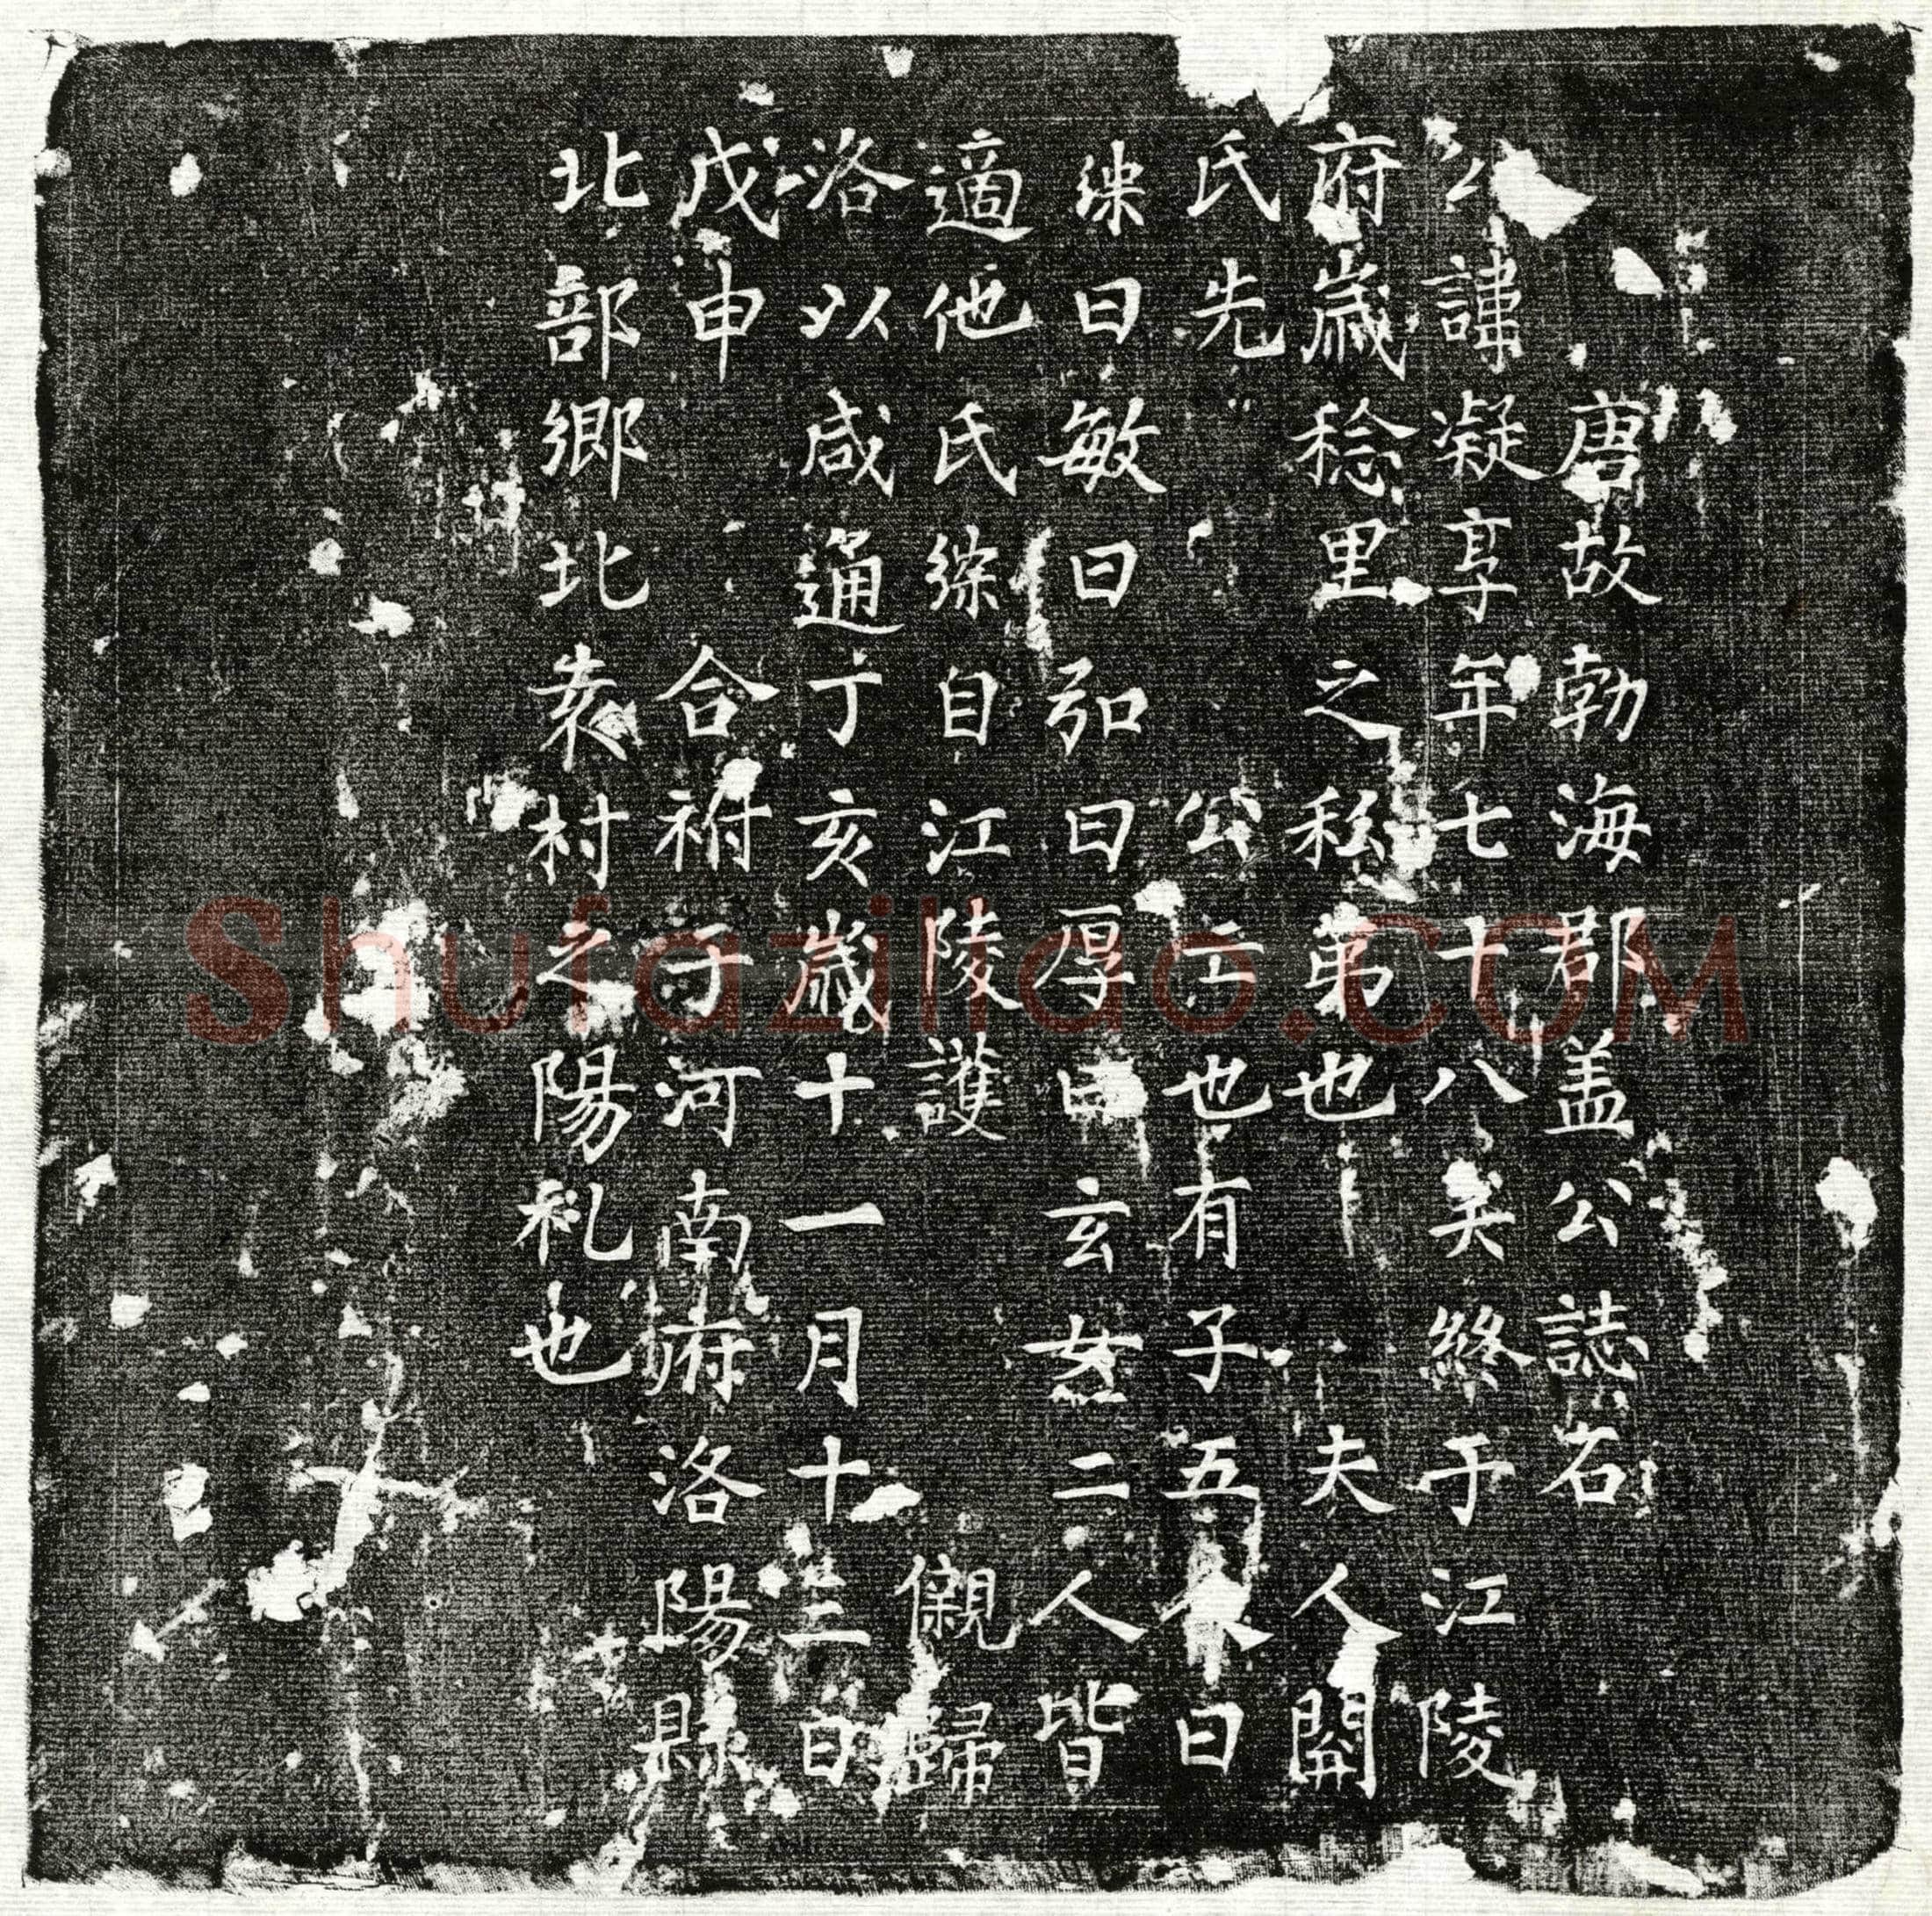 唐故勃海郡盖公誌石
公諱凝享年七十八矣終于江陵
府歲稔里之私第也 夫人開
氏先 公亡也有子五人曰
綜曰敏曰弘曰厚曰玄女二人皆
適他氏綜自江陵護 儭歸
洛以咸通丁亥歲十一月十三日
戊申 合祔于河南府洛陽縣
北部鄉北袁村之陽礼也
Shufaziliao.COM